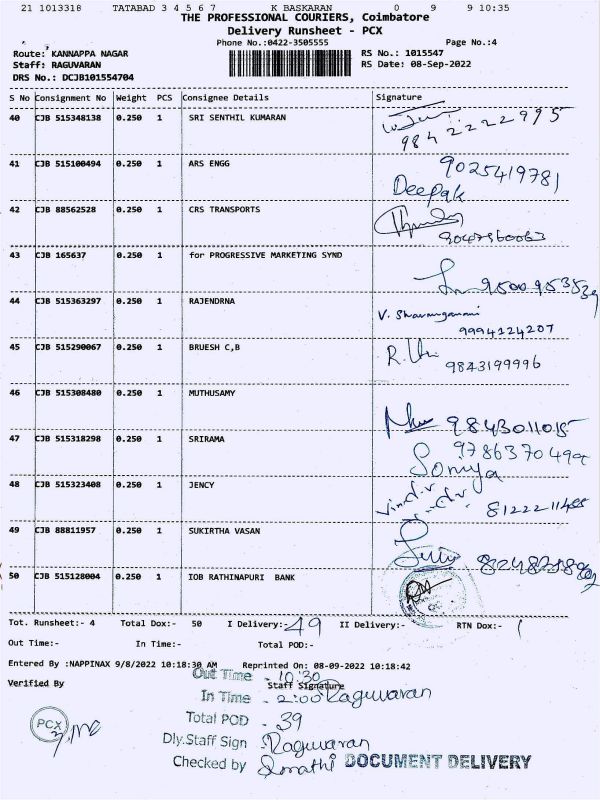 21 1013318 TATABAD 3 4 5 6 7 K BASKARAN 0 9 9 9 10:35
THE PROFESSIONAL COURIERS, Coimbatore
Delivery Runsheet - PCX
Phone No.:0422-3505555 Page No.:4
Route: KANNAPPA NAGAR RS No.: 1015547
Staff: RAGUVARAN RS Date: 08-Sep-2022
DRS No.: DCJB101554704
S No Consignment No Weight PCS Consignee Details Signature
40 CJB 515348138 0.250 1 SRI SENTHIL KUMARAN
984 2222995
41 CJB 515100494 0.250 1 ARS ENGG 9025419781
Deepak
42 CJB 88562528 0.250 1 CRS TRANSPORTS
43 CJB 165637 0.250 1 for PROGRESSIVE MARKETING SYND
9500953539
44 CJB 515363297 0.250 1 RAJENDRNA
9994124207
45 CJB 515290067 0.250 1 BRUESH C,B
9843199996
46 CJB 515308480 0.250 1 MUTHUSAMY
9843011015
47 CJB 515318298 0.250 1 SRIRAMA
Somya
48 CJB 515323408 0.250 1 JENCY
49 CJB 88811957 0.250 1 SUKIRTHA VASAN
50 CJB 515128004 0.250 1 IOB RATHINAPURI BANK
Tot. Runsheet:- 4 Total Dox:- 50 I Delivery:- 49 II Delivery:- RTN Dox:- 1
Out Time:- In Time:- Total POD:-
Entered By :NAPPINAX 9/8/2022 10:18:30 AM Reprinted On: 08-09-2022 10:18:42
Out Time - 10.30
Verified By Staff Signature
In Time - 2:00 Raguvaran
Total POD - 39
PCX
Dly.Staff Sign : Raguvaran
Checked by DOCUMENT DELIVERY